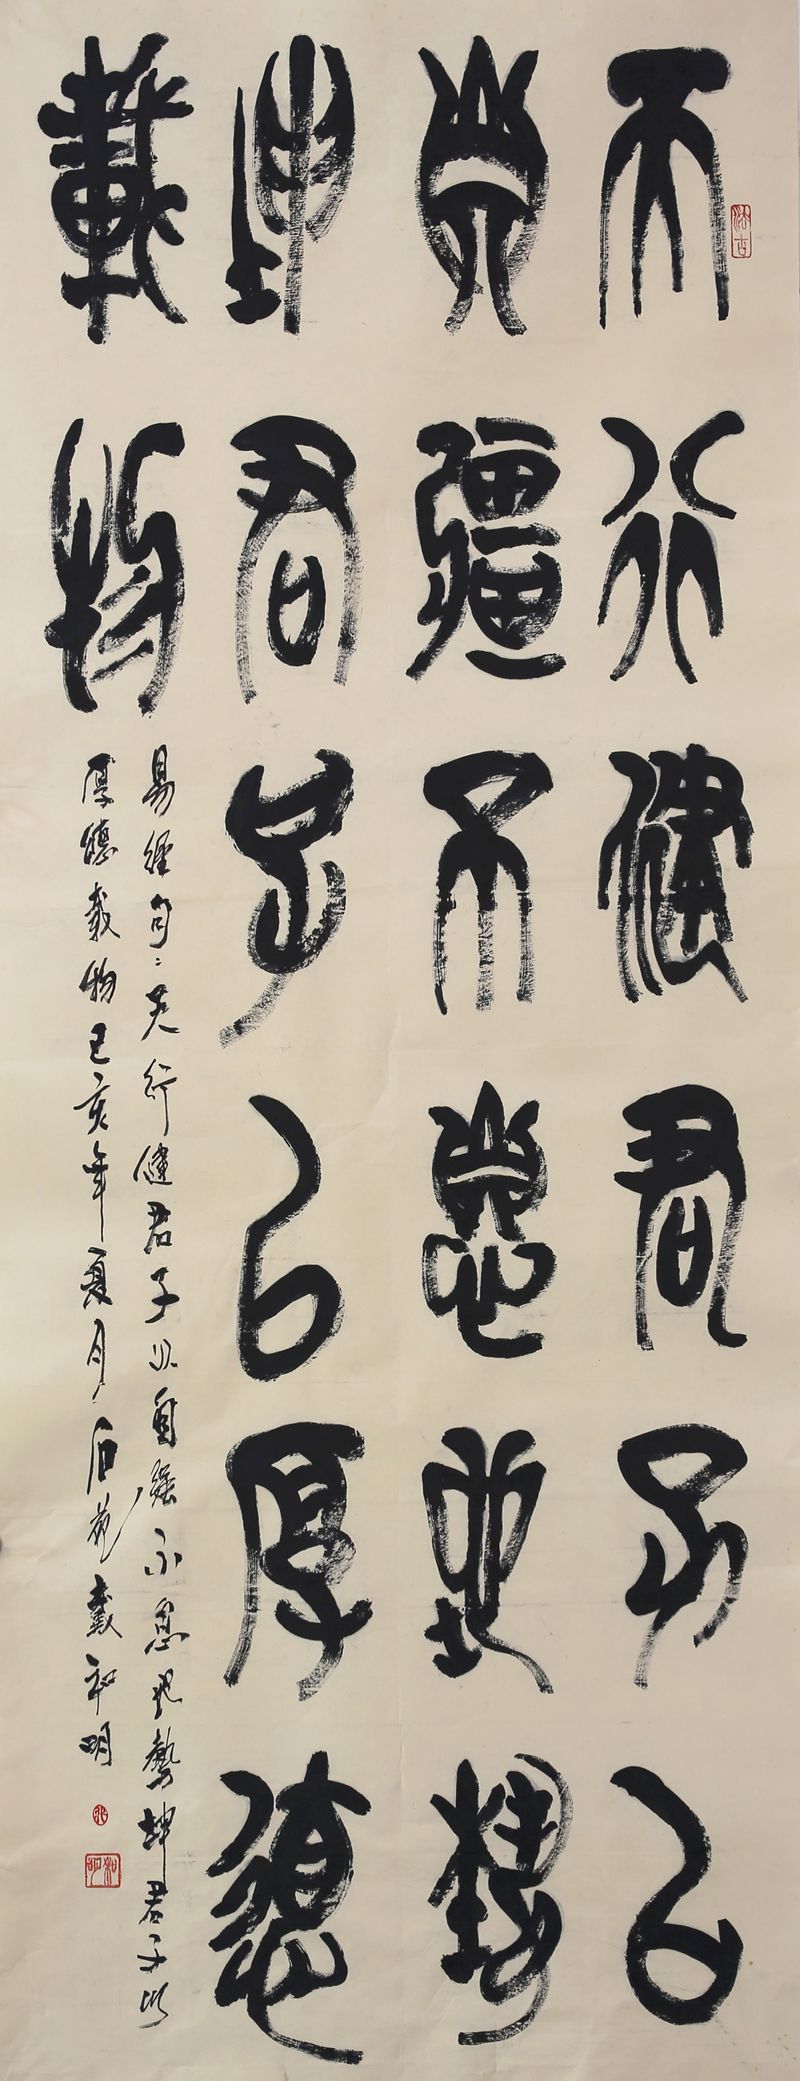 天行健君子以
自彊不息地勢
坤君子以厚德
載物
易經句：天行健君子以自強不息地勢坤君子以
厚德載物己亥年夏月石苑戴和明